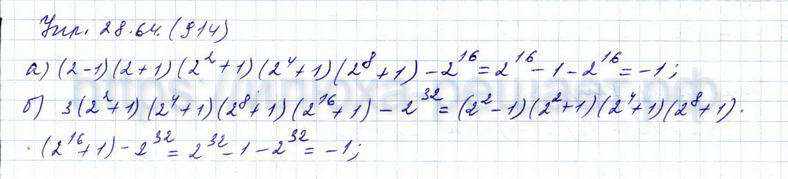 Упр. 28.64. (914)
а) (2-1)(2+1)(2²+1)(2⁴+1)(2⁸+1) - 2¹⁶ = 2¹⁶ - 1 - 2¹⁶ = -1;
б) 3(2²+1)(2⁴+1)(2⁸+1)(2¹⁶+1) - 2³² = (2²-1)(2²+1)(2⁴+1)(2⁸+1)·
·(2¹⁶+1) - 2³² = 2³² - 1 - 2³² = -1;